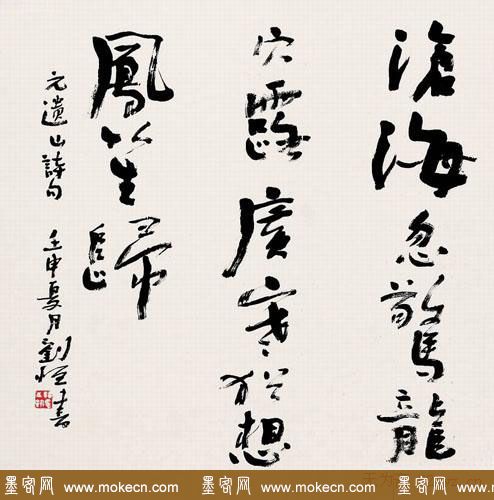 滄海忽驚龍
穴露廣寒猶想
鳳笙歸
元遺山詩句 壬申夏月劉恒書
墨客网 www.mokecn.com 墨客网 www.mokecn.com 墨客网 www.mokecn.com